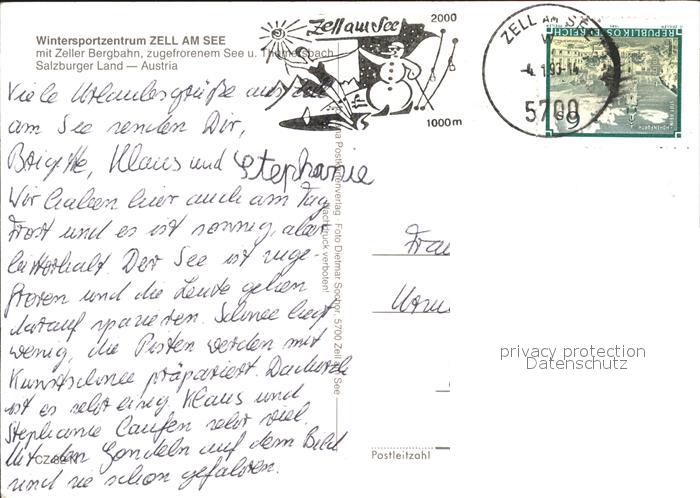 Wintersportzentrum ZELL AM SEE
mit Zeller Bergbahn, zugefrorenem See u. Thumersbach
Salzburger Land — Austria
Zell am See
2000
1000 m
ZELL AM SEE
4. 1. 93-14
5700
REPUBLIK ÖSTERREICH
6
Viele Urlaubsgrüße aus Zell
am See senden Dir,
Brigitte, Klaus und Stephanie
Wir haben hier auch am Tag
Frost und es ist sonnig, aber
bitterkalt. Der See ist zuge-
froren und die Leute gehen
darauf spazieren. Schnee liegt
wenig, die Pisten werden mit
Kunstschnee präpariert. Dadurch
ist es sehr eisig. Klaus und
Stephanie laufen sehr viel.
Mit den Gondeln auf dem Bild
sind sie schon gefahren.
Postkartenverlag - Foto Dietmar Sochor, 5700 Zell See
Nachdruck verboten
Frau
privacy protection
Datenschutz
Postleitzahl